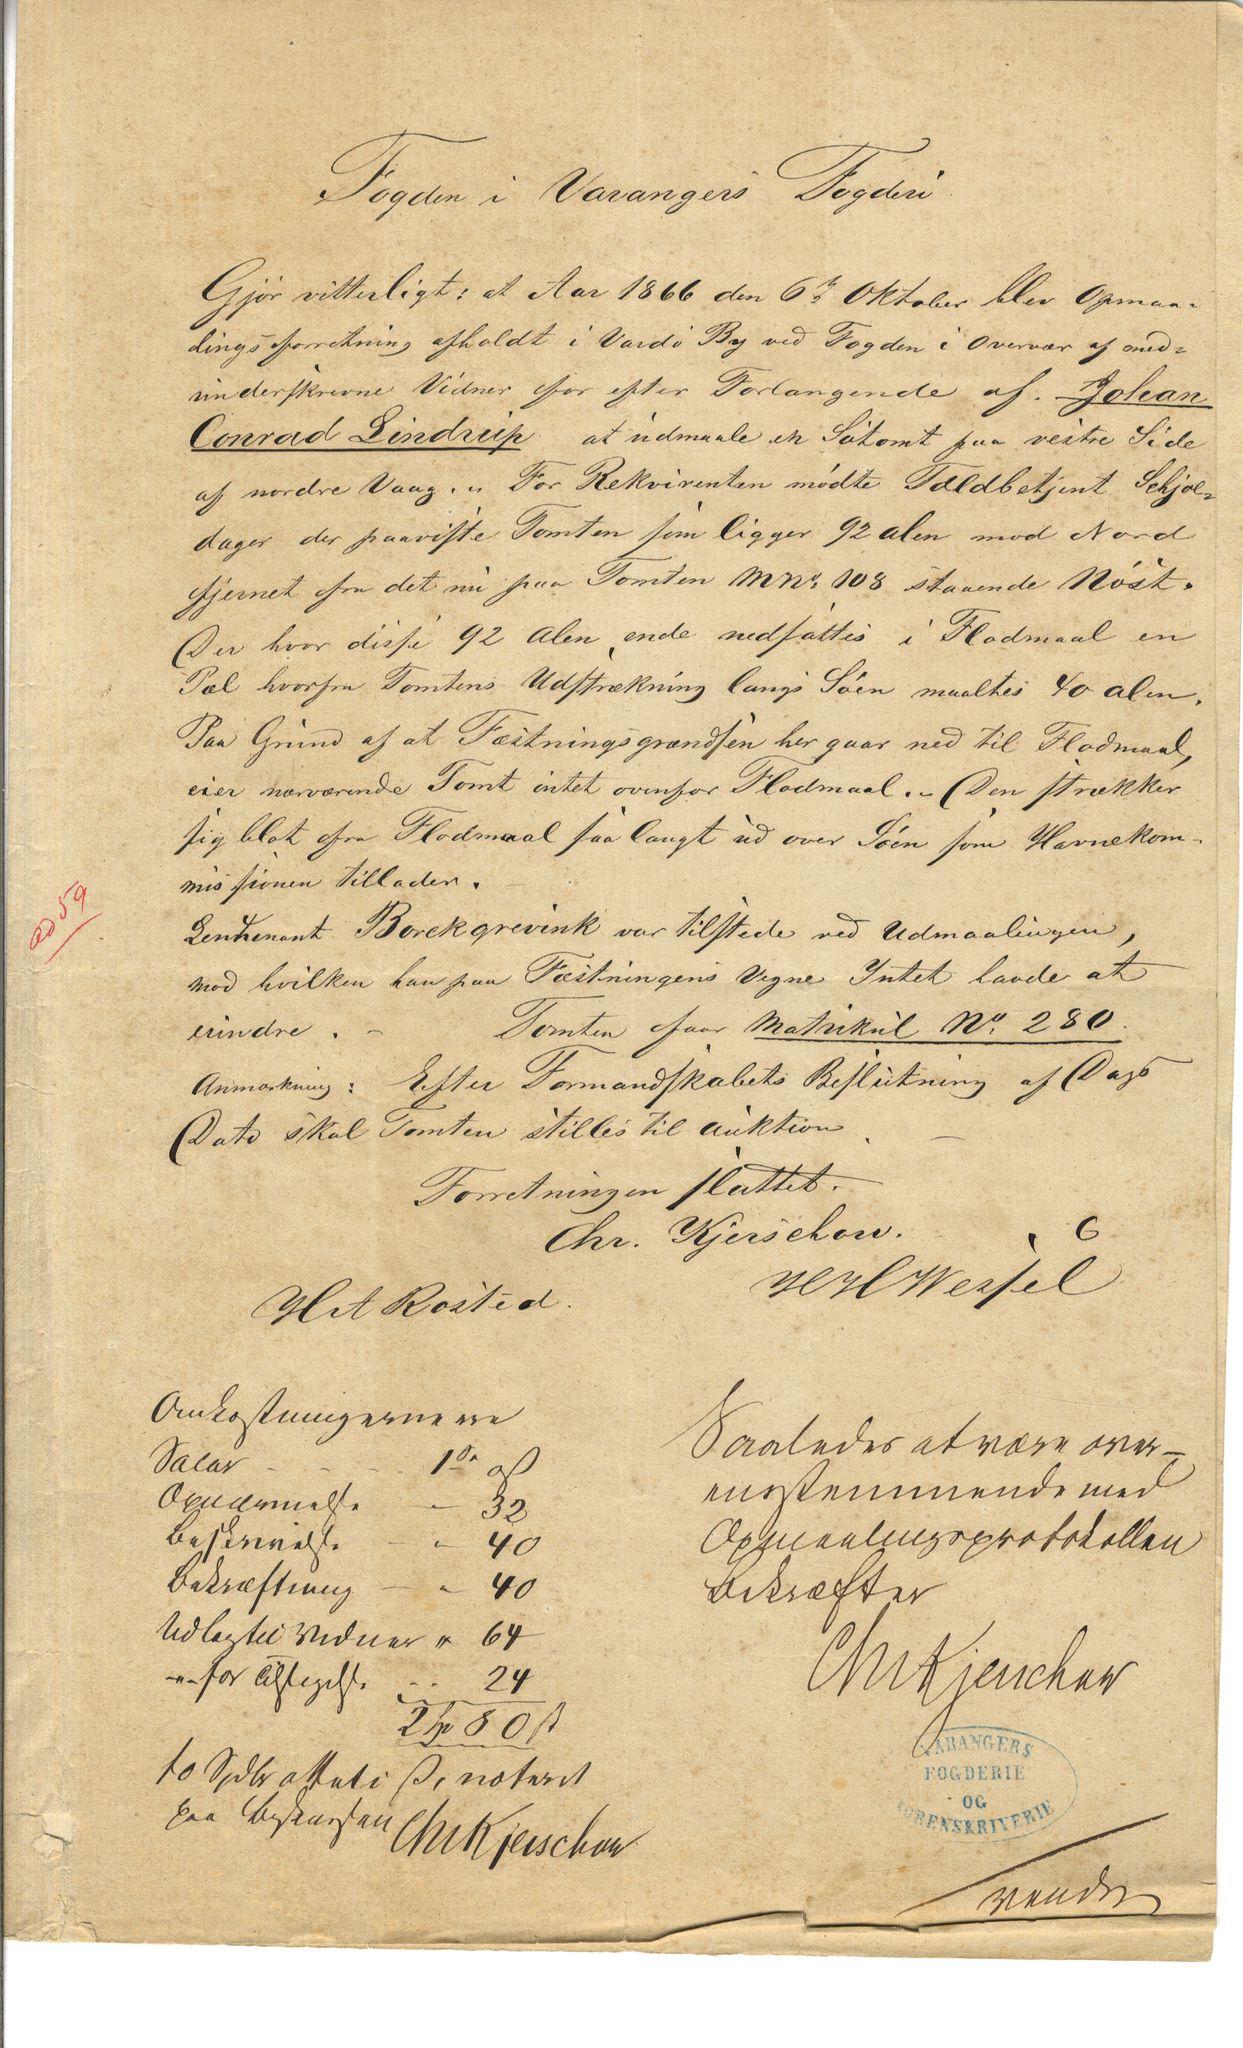 Fogden i Varangers Fogderi
Gjør vitterligt: at Aar 1866 den 6te Oktober blev Opmaa-
lingsforretning afholdt i Vardö By ved Fogden i Overvær af med-
underskrevne Vidner for efter Forlangende af Johan
Conrad Lindrup at udmaale en Sötomt paa vestre Side
af nordre Vaag. For Rekvirenten mödte Toldbetjent Schjol-
dager der paaviste Tomten som ligger 92 alen mod Nord
fjernet fra det nu paa Tomten MNo 108 staaende Nöst.
Der hvor disse 92 Alen ende nedsattes i Flodmaal en
Pæl hvorfra Tomtens Udstrækning langs Söen maaltes 40 alen.
Paa Grund af at Fæstningsgrændsen her gaar ned til Flodmaal,
eier nærværende Tomt intet ovenfor Flodmaal. Den strækker
sig blot fra Flodmaal saa langt ud over Söen som Havnekom-
missionen tillader.
59
Leutenant Borckgrevink var tilstede ved Udmaalingen,
mod hvilken han paa Fæstningens Vegne Intet havde at
erindre. Tomten faar Matrikul No. 280.
Anmærkning: Efter Formandskabets Beslutning af Dags
Dato skal Tomten stilles til auktion.
Forretningen sluttet.
Chr. Kjerschow.
H H Wessel
Rosted.
Omkostningerne ere
Salær 1 Sp ß
Opnævnelse " 32
Beskrivelse " 40
Bekræftning " 40
Udlagt til Vidner " 64
" for 24
2 Sp 80 ß
noteret
paa
Chr Kjerschow
Saaledes at være over-
ensstemmende med
Opmaalingsprotokollen
bekræfter
Chr Kjerschow
VARANGERS
FOGDERIE
OG
SORENSKRIVERIE
vende